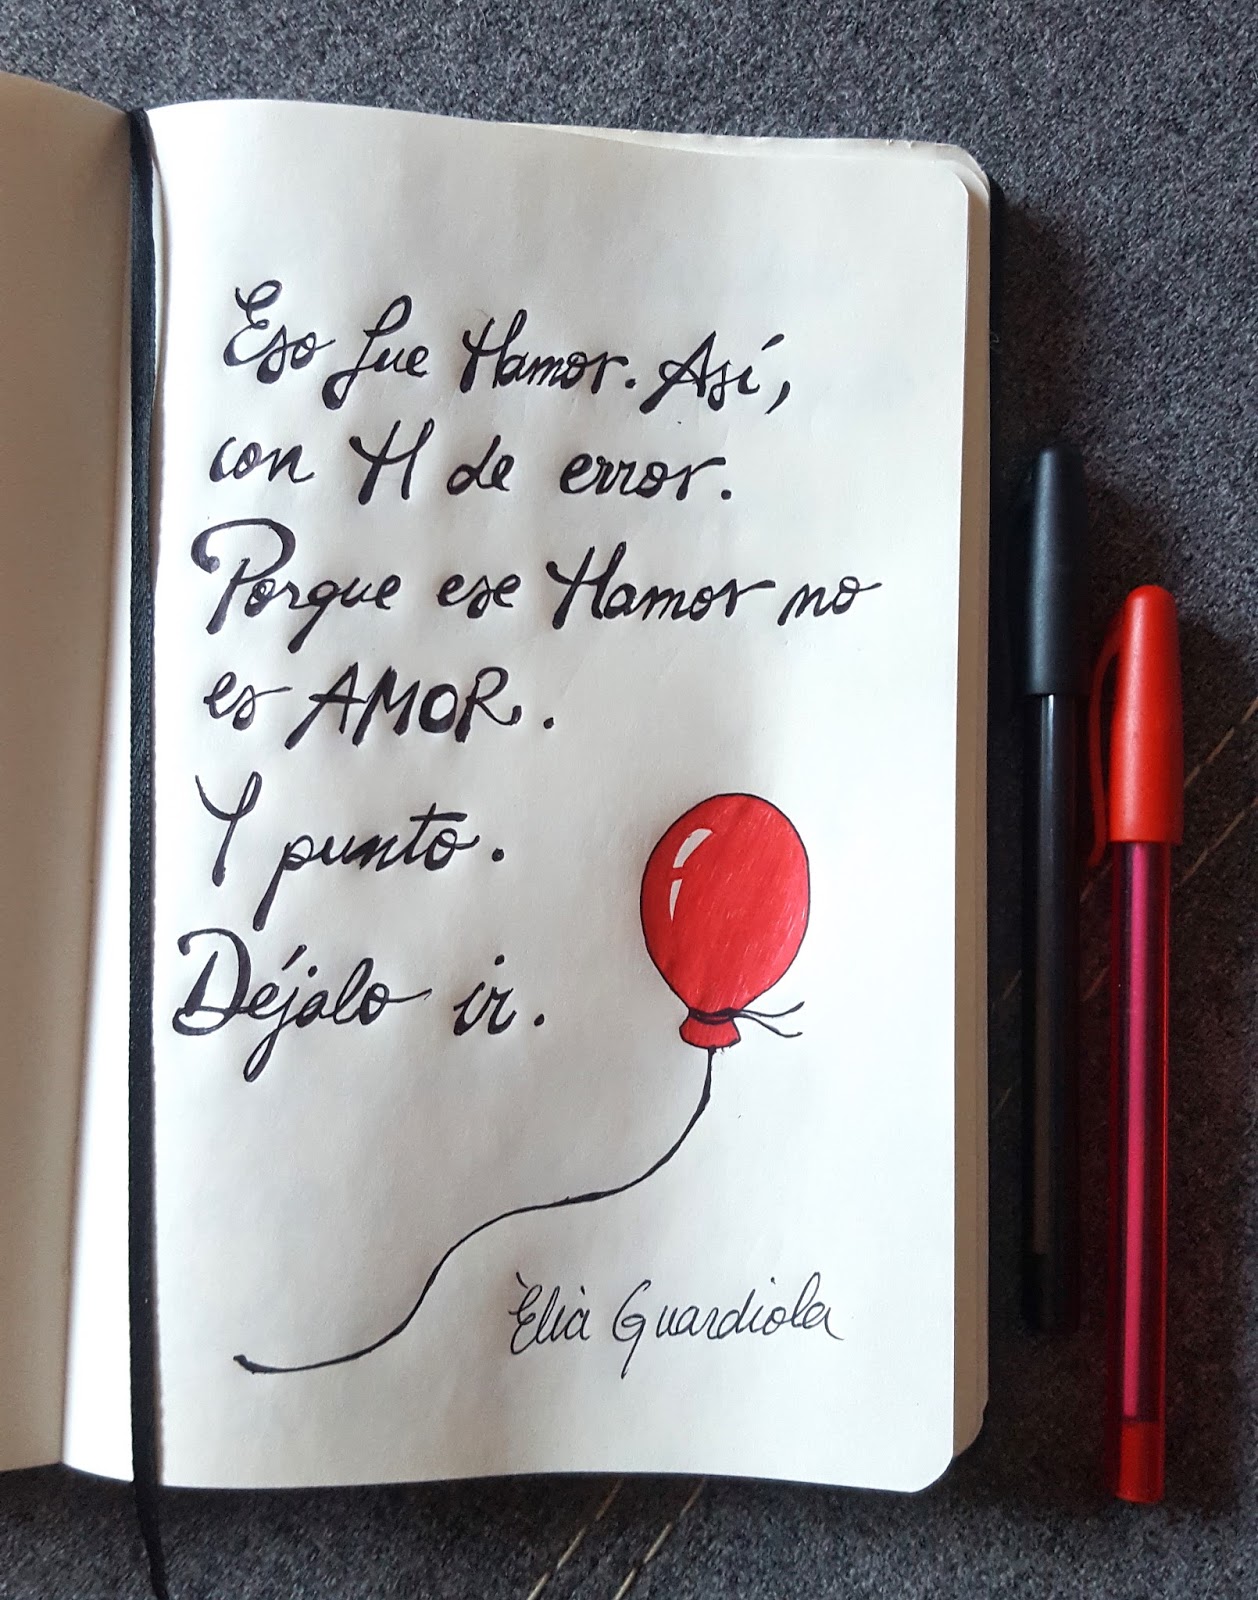 Eso fue Hamor. Así,
con H de error.
Porque ese Hamor no
es AMOR.
Y punto.
Déjalo ir.
Èlia Guardiola